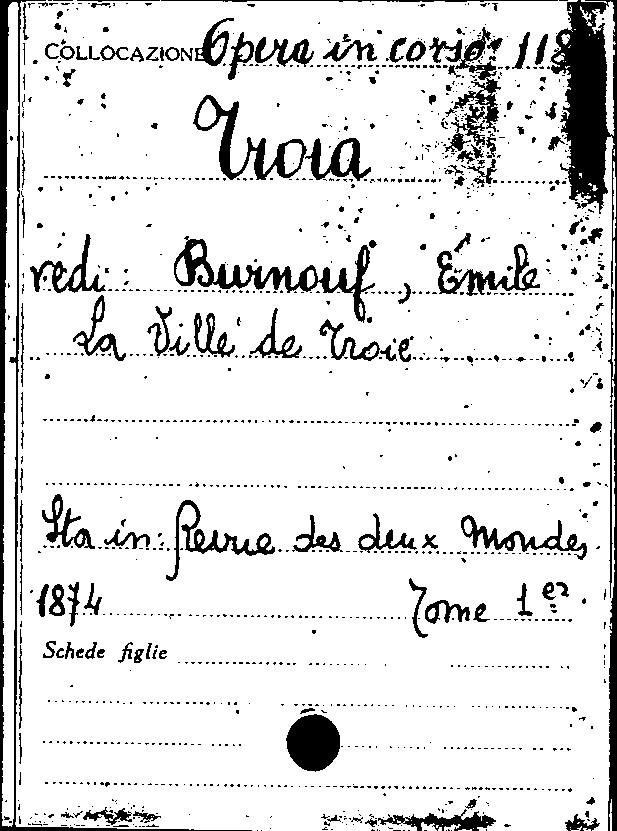 COLLOCAZIONE Opera in corso 118
Troia
vedi: Burnouf, Émile
La Ville de Troie
Sta in: Revue des deux Mondes
1874 Tome 1er
Schede figlie